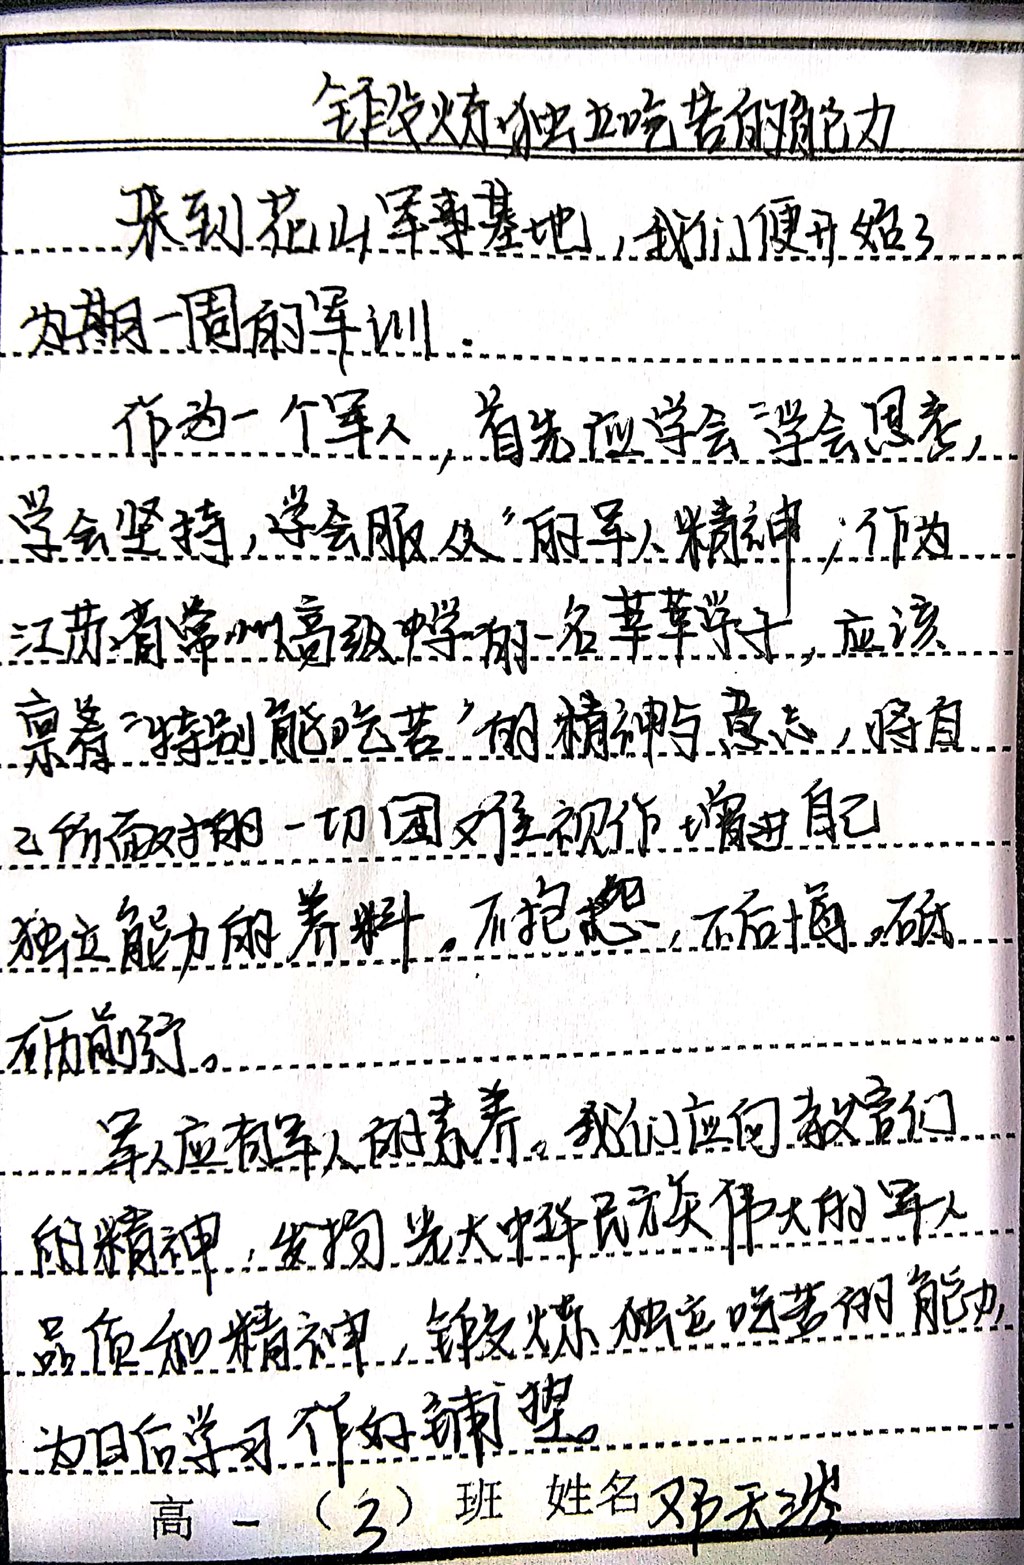 锻炼独立吃苦的能力
来到花山军事基地，我们便开始了
为期一周的军训．
作为一个军人，首先应学会“学会思考，
学会坚持，学会服从”的军人精神；作为
江苏省常州高级中学的一名莘莘学子，应该
禀着“特别能吃苦”的精神与意志，将自
己所面对的一切困难视作增进自己
独立能力的养料。不抱怨，不后悔。砥
砺前行。
军人应有军人的素养。我们应向教官们
的精神，发扬光大中华民族伟大的军人
品质和精神，锻炼独立吃苦的能力，
为日后学习作好铺垫。
高一（3）班 姓名 邓天